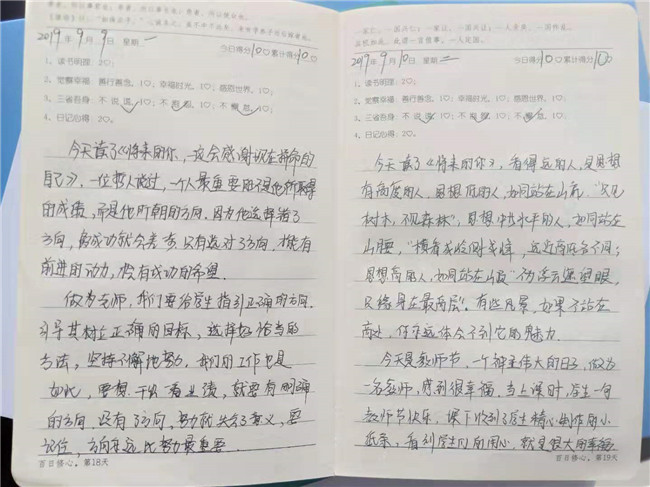 2019年9月9日 星期一
今日得分100累计得分100
1、读书明理：20；
2、觉察幸福：善行善念，10；幸福时光，10；感恩世界，10；
3、三省吾身：不说谎，10；不抱怨，10；不懈怠，10；
4、日记心得：20。
今天读了《将来的你，一定会感谢现在拼命的
自己》，一位哲人说过，一个人最重要的不是他所取得
的成绩，而是他所朝的方向。因为他选择错了
方向，离成功就会
只有选对了方向，才能有
前进的动力，
有成功的希望。
做为老师，我们要给学生指引正确的方向，
引导其树立正确的目标，选择好恰当的
方法，坚持不懈地努力，我们的工作也是
如此，要想干出一番业绩，就要有明确
的方向，没有了方向，努力就失去了意义，要
记住，方向永远比努力最重要。
百日修心，第18天
2019年9月10日 星期二
今日得分100累计得分100
1、读书明理：20；
2、觉察幸福：善行善念，10；幸福时光，10；感恩世界，10；
3、三省吾身：不说谎，10；不抱怨，10；不懈怠，10；
4、日记心得：20。
今天读了《将来的你》，看得远的人，是思想
有高度的人，思想低的人，如同站在山底，“只见
树木，不见森林”，思想中水平的人，如同站在
山腰，“横看成岭侧成峰，远近高低各不同；
思想高的人，如同站在山巅“不为浮云遮望眼，
只缘身在最高层”。有些风景，如果不站在
高处，你永远体会不到它的魅力。
今天是教师节，一个神圣伟大的日子，做为
一名教师，感到很幸福，当上课时，学生一句
教师节快乐，课下收到了学生精心制作的小
纸条，看到学生们的用心，就是很大的幸福。
百日修心，第19天